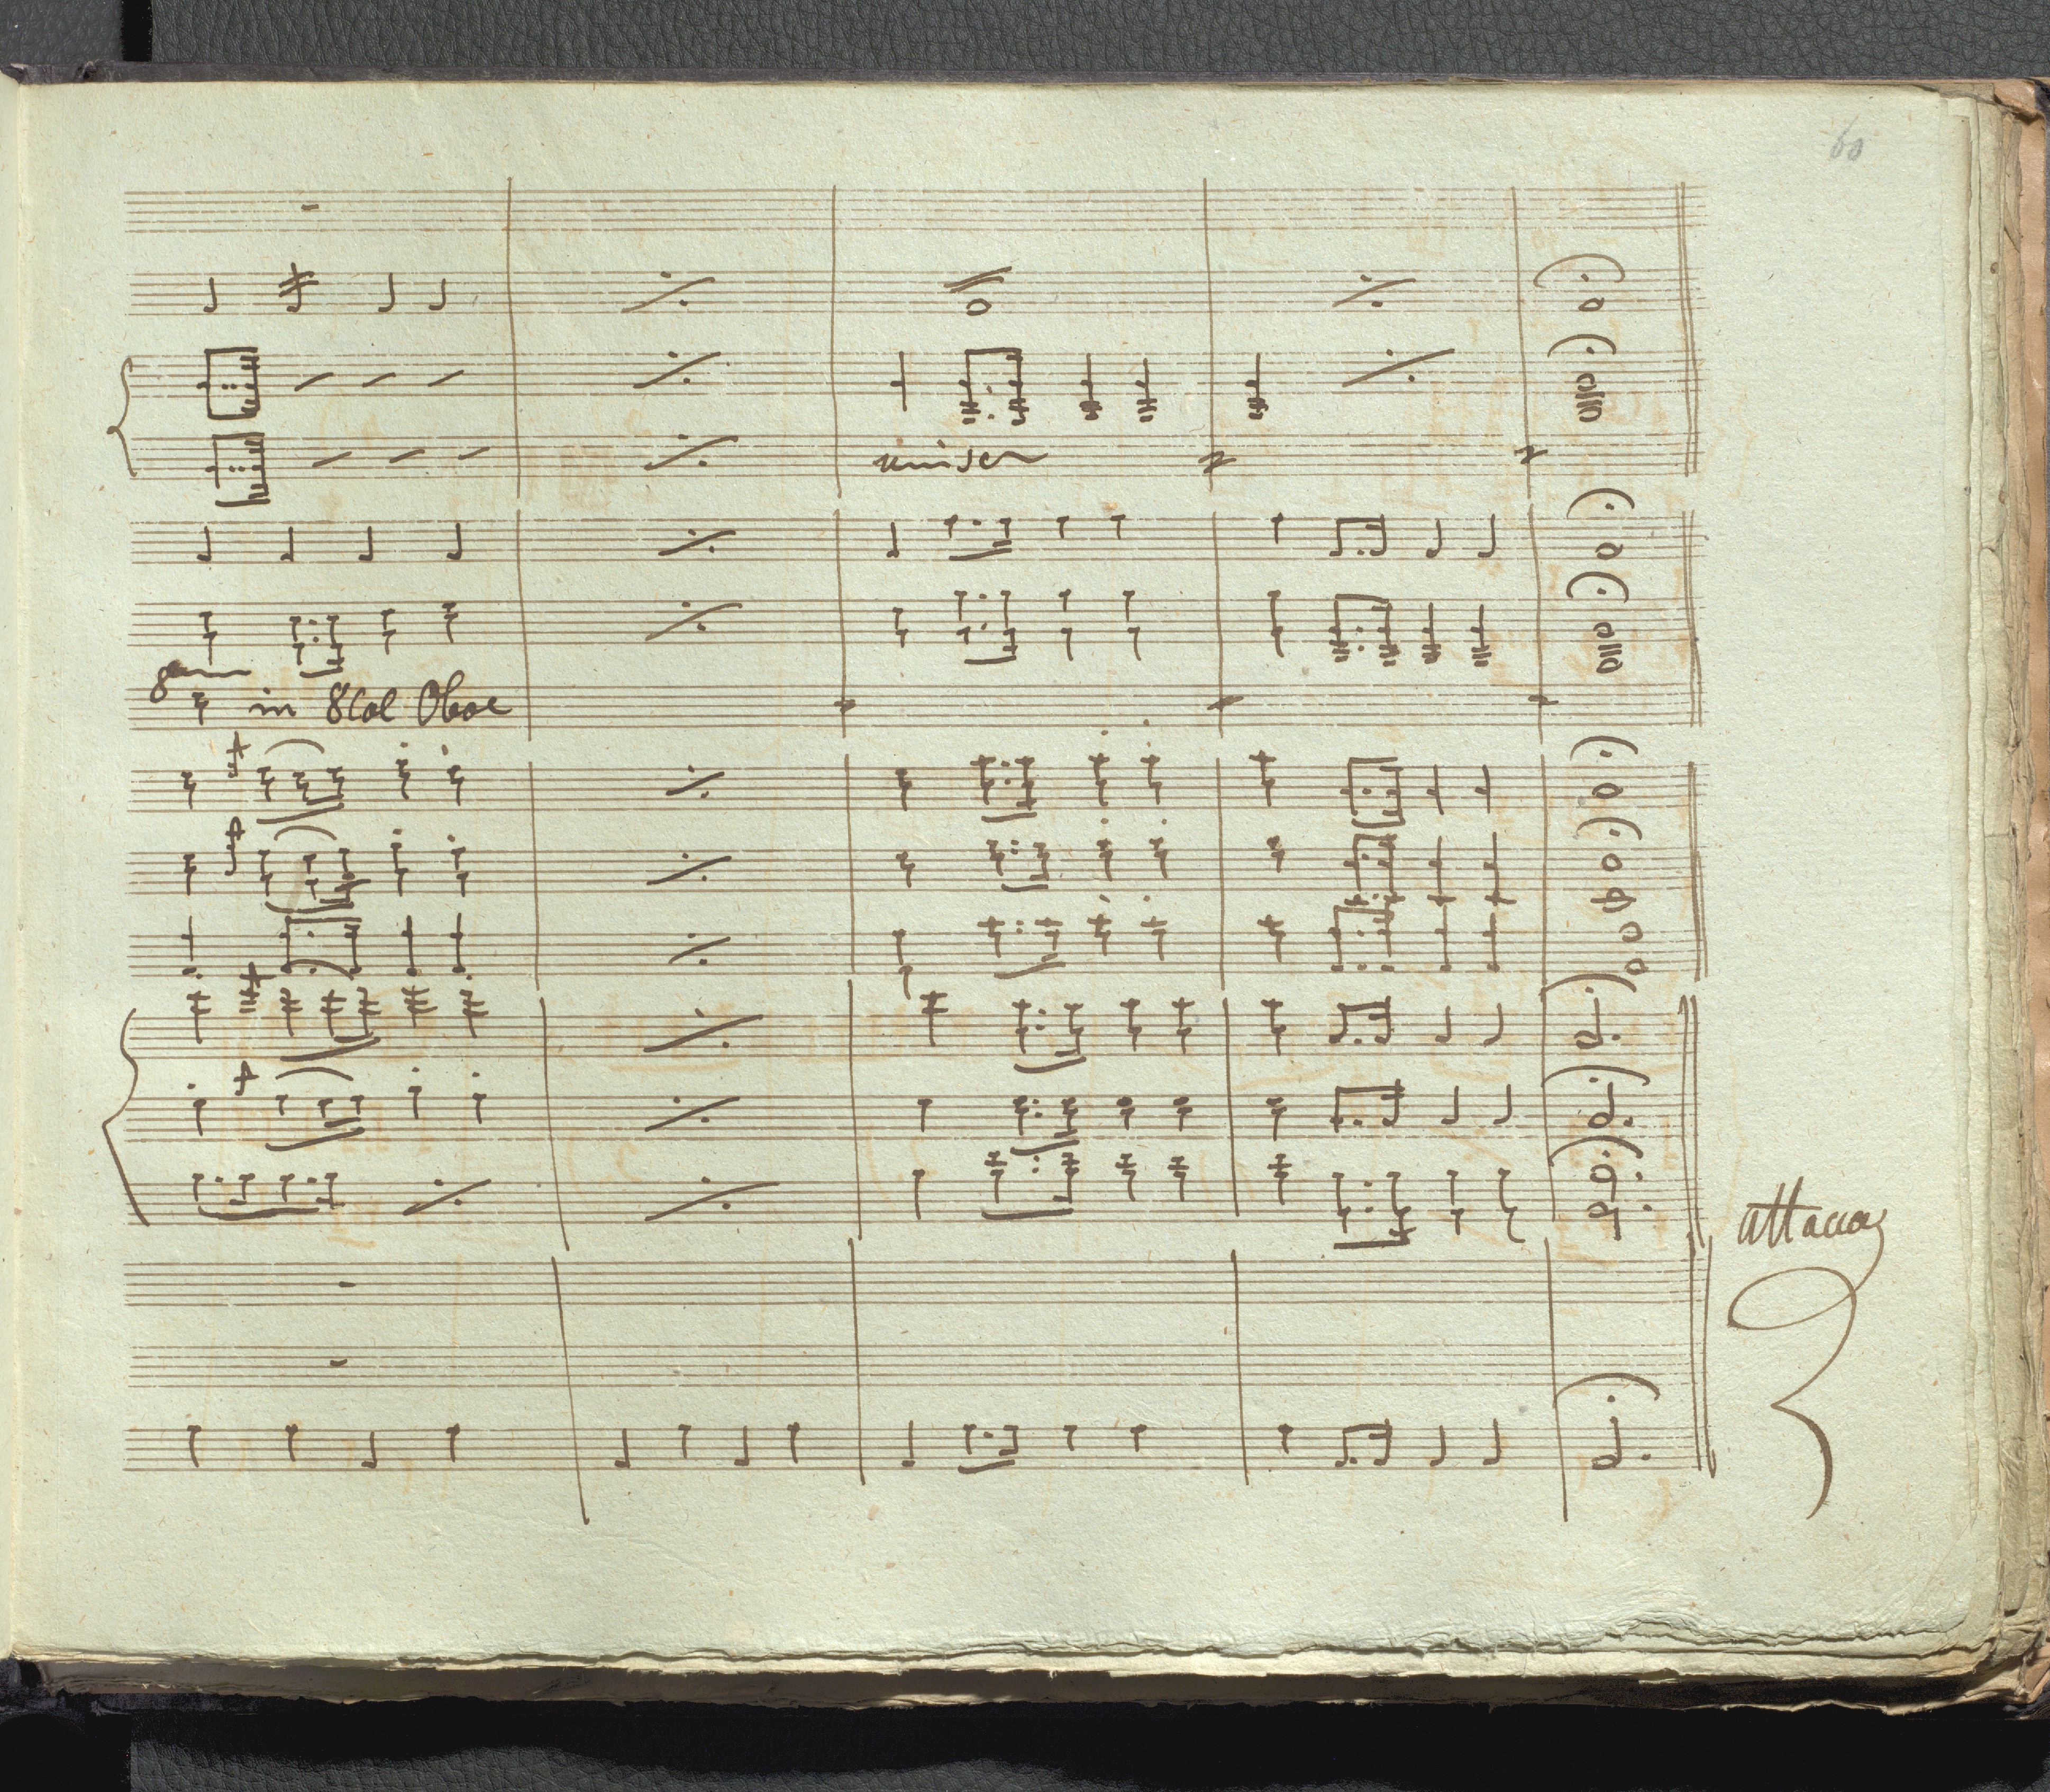 60
unison
8va in 8 Col Oboe
attacca